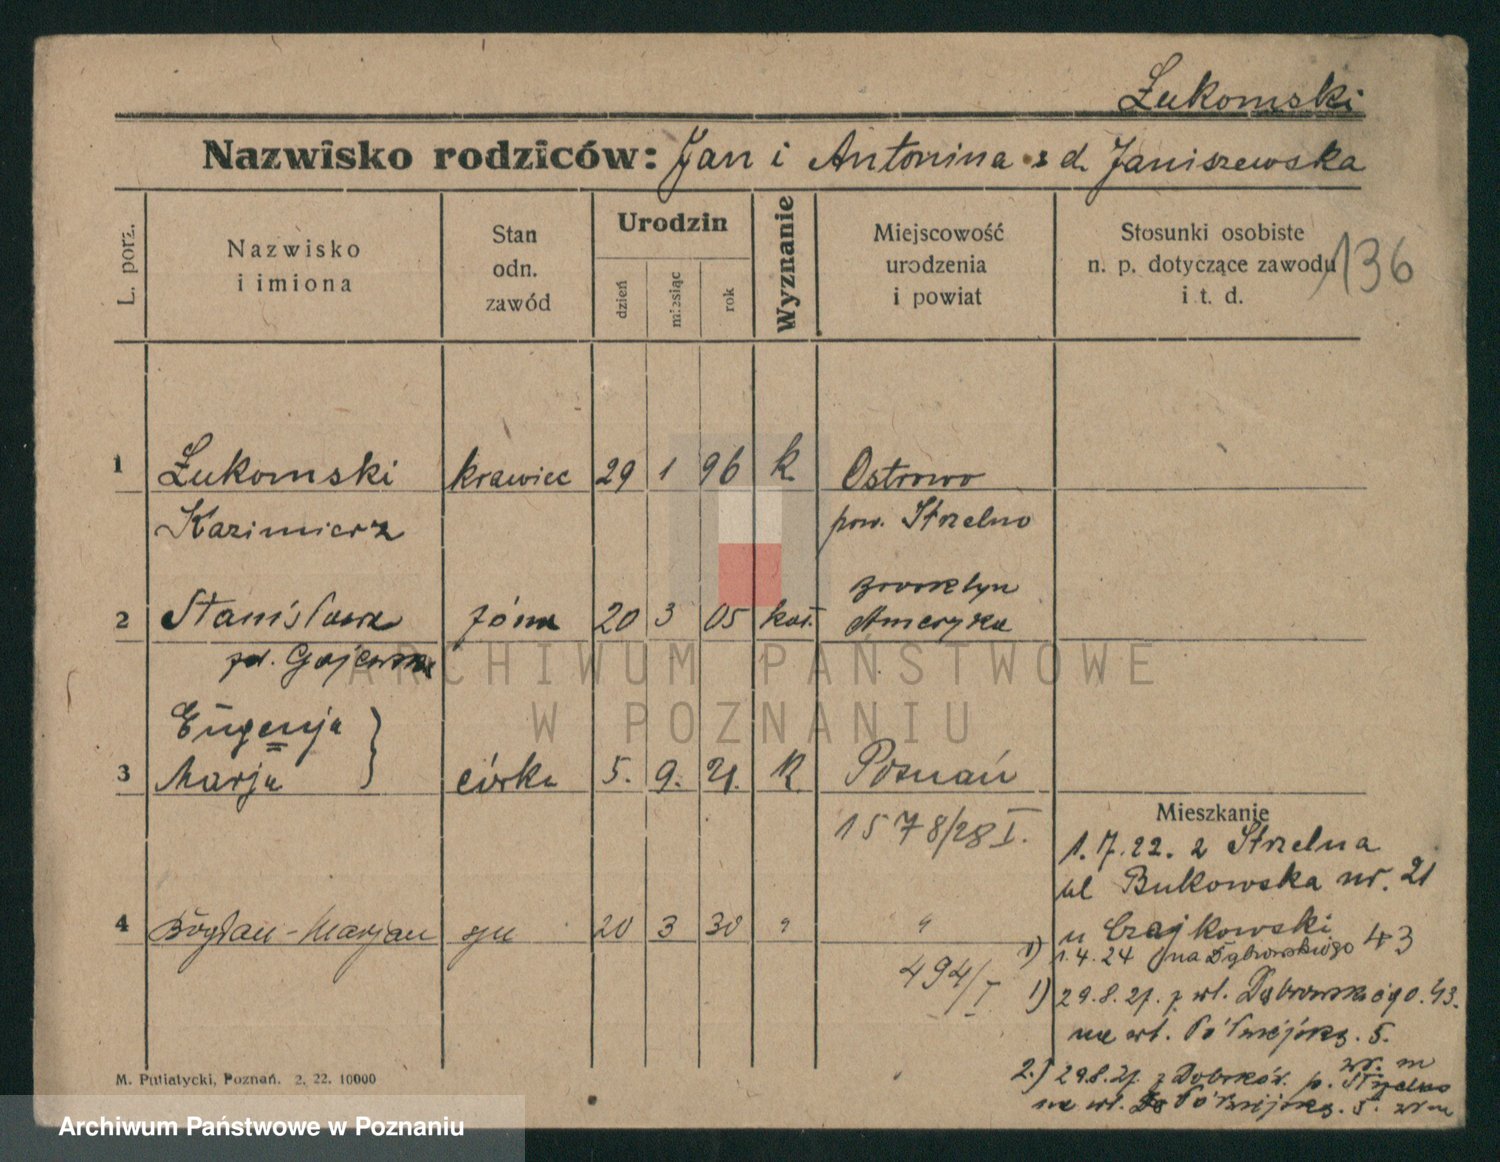 Łukomski
Nazwisko rodziców: Jan i Antonina z d. Janiszewska
L. porz.
Nazwisko
i imiona
Stan
odn.
zawód
Urodzin
dzień
miesiąc
rok
Wyznanie
Miejscowość
urodzenia
i powiat
Stosunki osobiste
n. p. dotyczące zawodu
i t. d.
136
1 Łukomski krawiec 29 1 96 k. Ostrowo
Kazimierz pow. Strzelno
Brooklyn
2 Stanisława żona 20 3 05 kat. Ameryka
zd. Gajewska
Eugenja
3 Marja córka 5. 9. 21. k. Poznań
1578/28 I.
4 Bogdan-Marjan syn 20 3 30 " "
494/I
Mieszkanie
1.7.22. z Strzelna
ul Bukowska nr. 21
u Czajkowski
1) 1.4.24 na Dąbrowskiego 43
1) 29.8.27. z wł. Dąbrowskiego. 43.
na wł. 5.
2.) 29.8.27. z p. Strzelno
na wł. 5.
M. Putiatycki, Poznań. 2. 22. 10000
ARCHIWUM PAŃSTWOWE
W POZNANIU
Archiwum Państwowe w Poznaniu